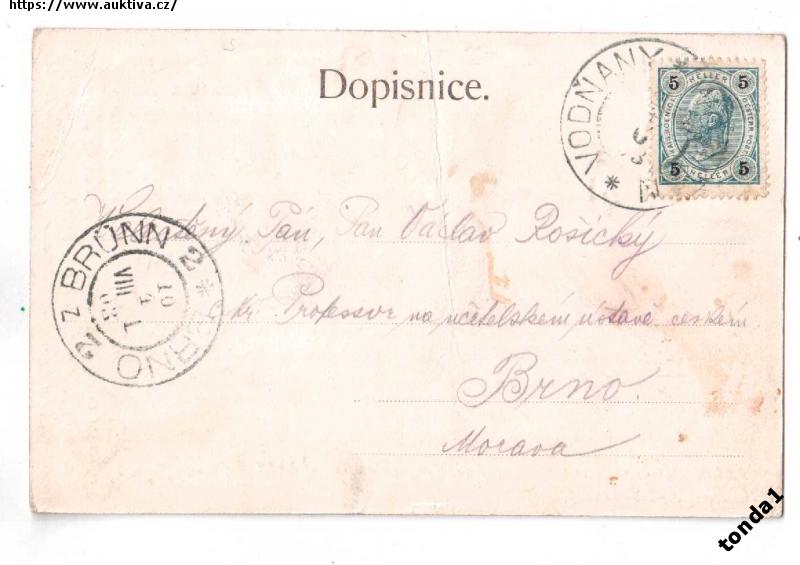 https://www.auktiva.cz/
Dopisnice.
* VODŇANY *
5 HELLER 5
5 HELLER 5
Pán, Pan Václav Rosický
c. kr. Professor na učitelském ústavě českém
Brno.
Morava
2 * BRNO 2 Z BRÜNN
10
VIII
tonda1